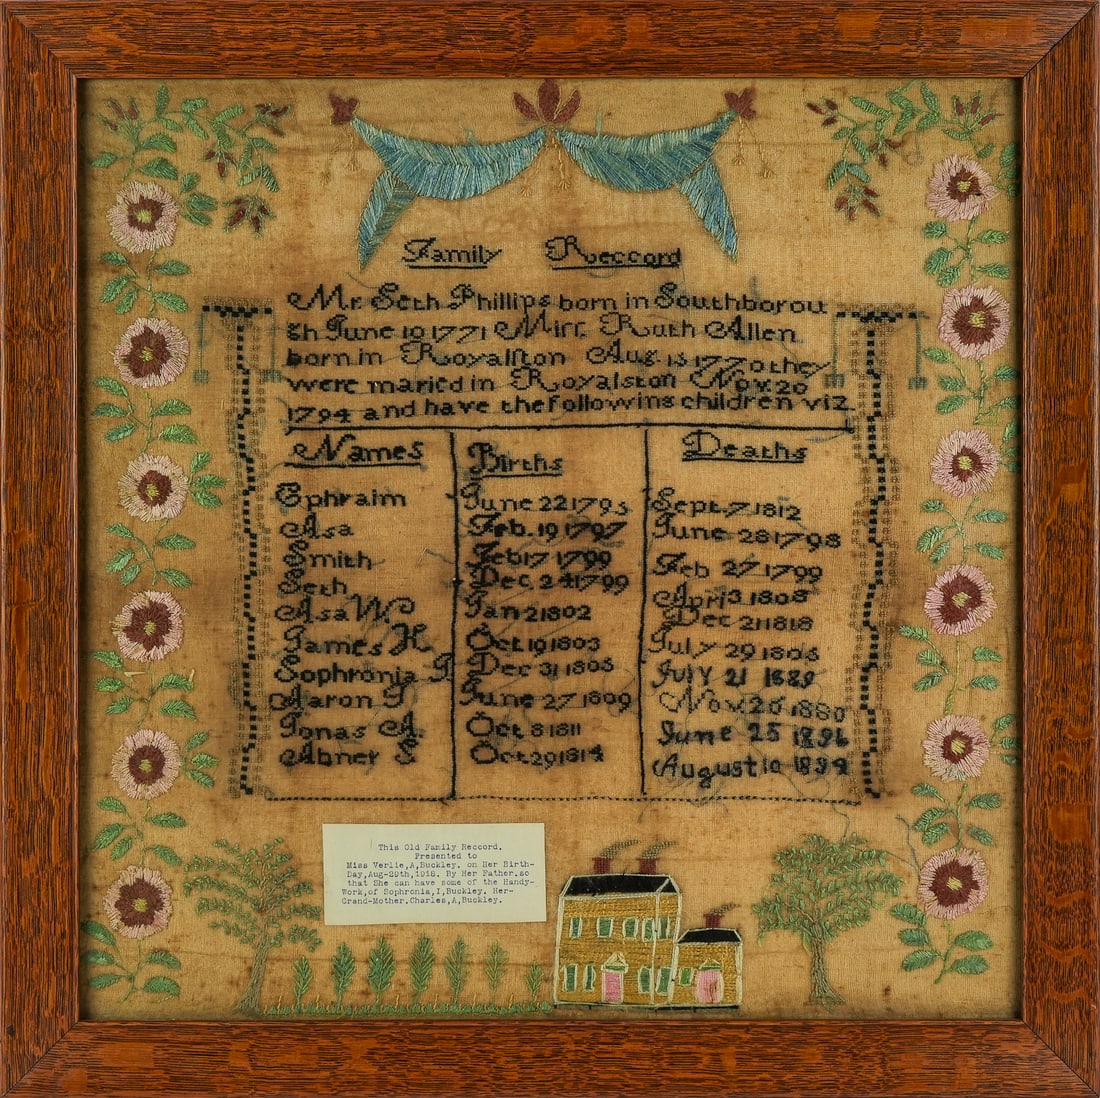 Family Reccord
Mr. Seth Phillips born in Southborou
gh June 10 1771 Mirr. Ruth Allen
born in Royalston Aug. 15 1770 they
were maried in Royalston Nov. 20
1794 and have the following children viz
Names Births Deaths
Ephraim June 22 1795 Sept. 7 1812
Asa Feb. 19 1797 June 28 1798
Smith Feb 17 1799 Feb 27 1799
Seth Dec 24 1799 Apri 3 1808
Asa W. Jan 2 1802 Dec 21 1818
James H. Oct 19 1803 July 29 1805
Sophronia Dec 31 1805 JulY 21 1889
Aaron June 27 1809 Nov. 26 1880
Jonas A. Oct 8 1811 June 25 1896
Abner S Oct 29 1814 August 10 1894
This Old Family Reccord.
Presented to
Miss Verlie,A,Buckley. on Her Birth-
Day,Aug-29th,1918. By Her Father.so
that She can have some of the Handy-
Work,of Sophronia,I,Buckley. Her-
Grand-Mother.Charles,A,Buckley.